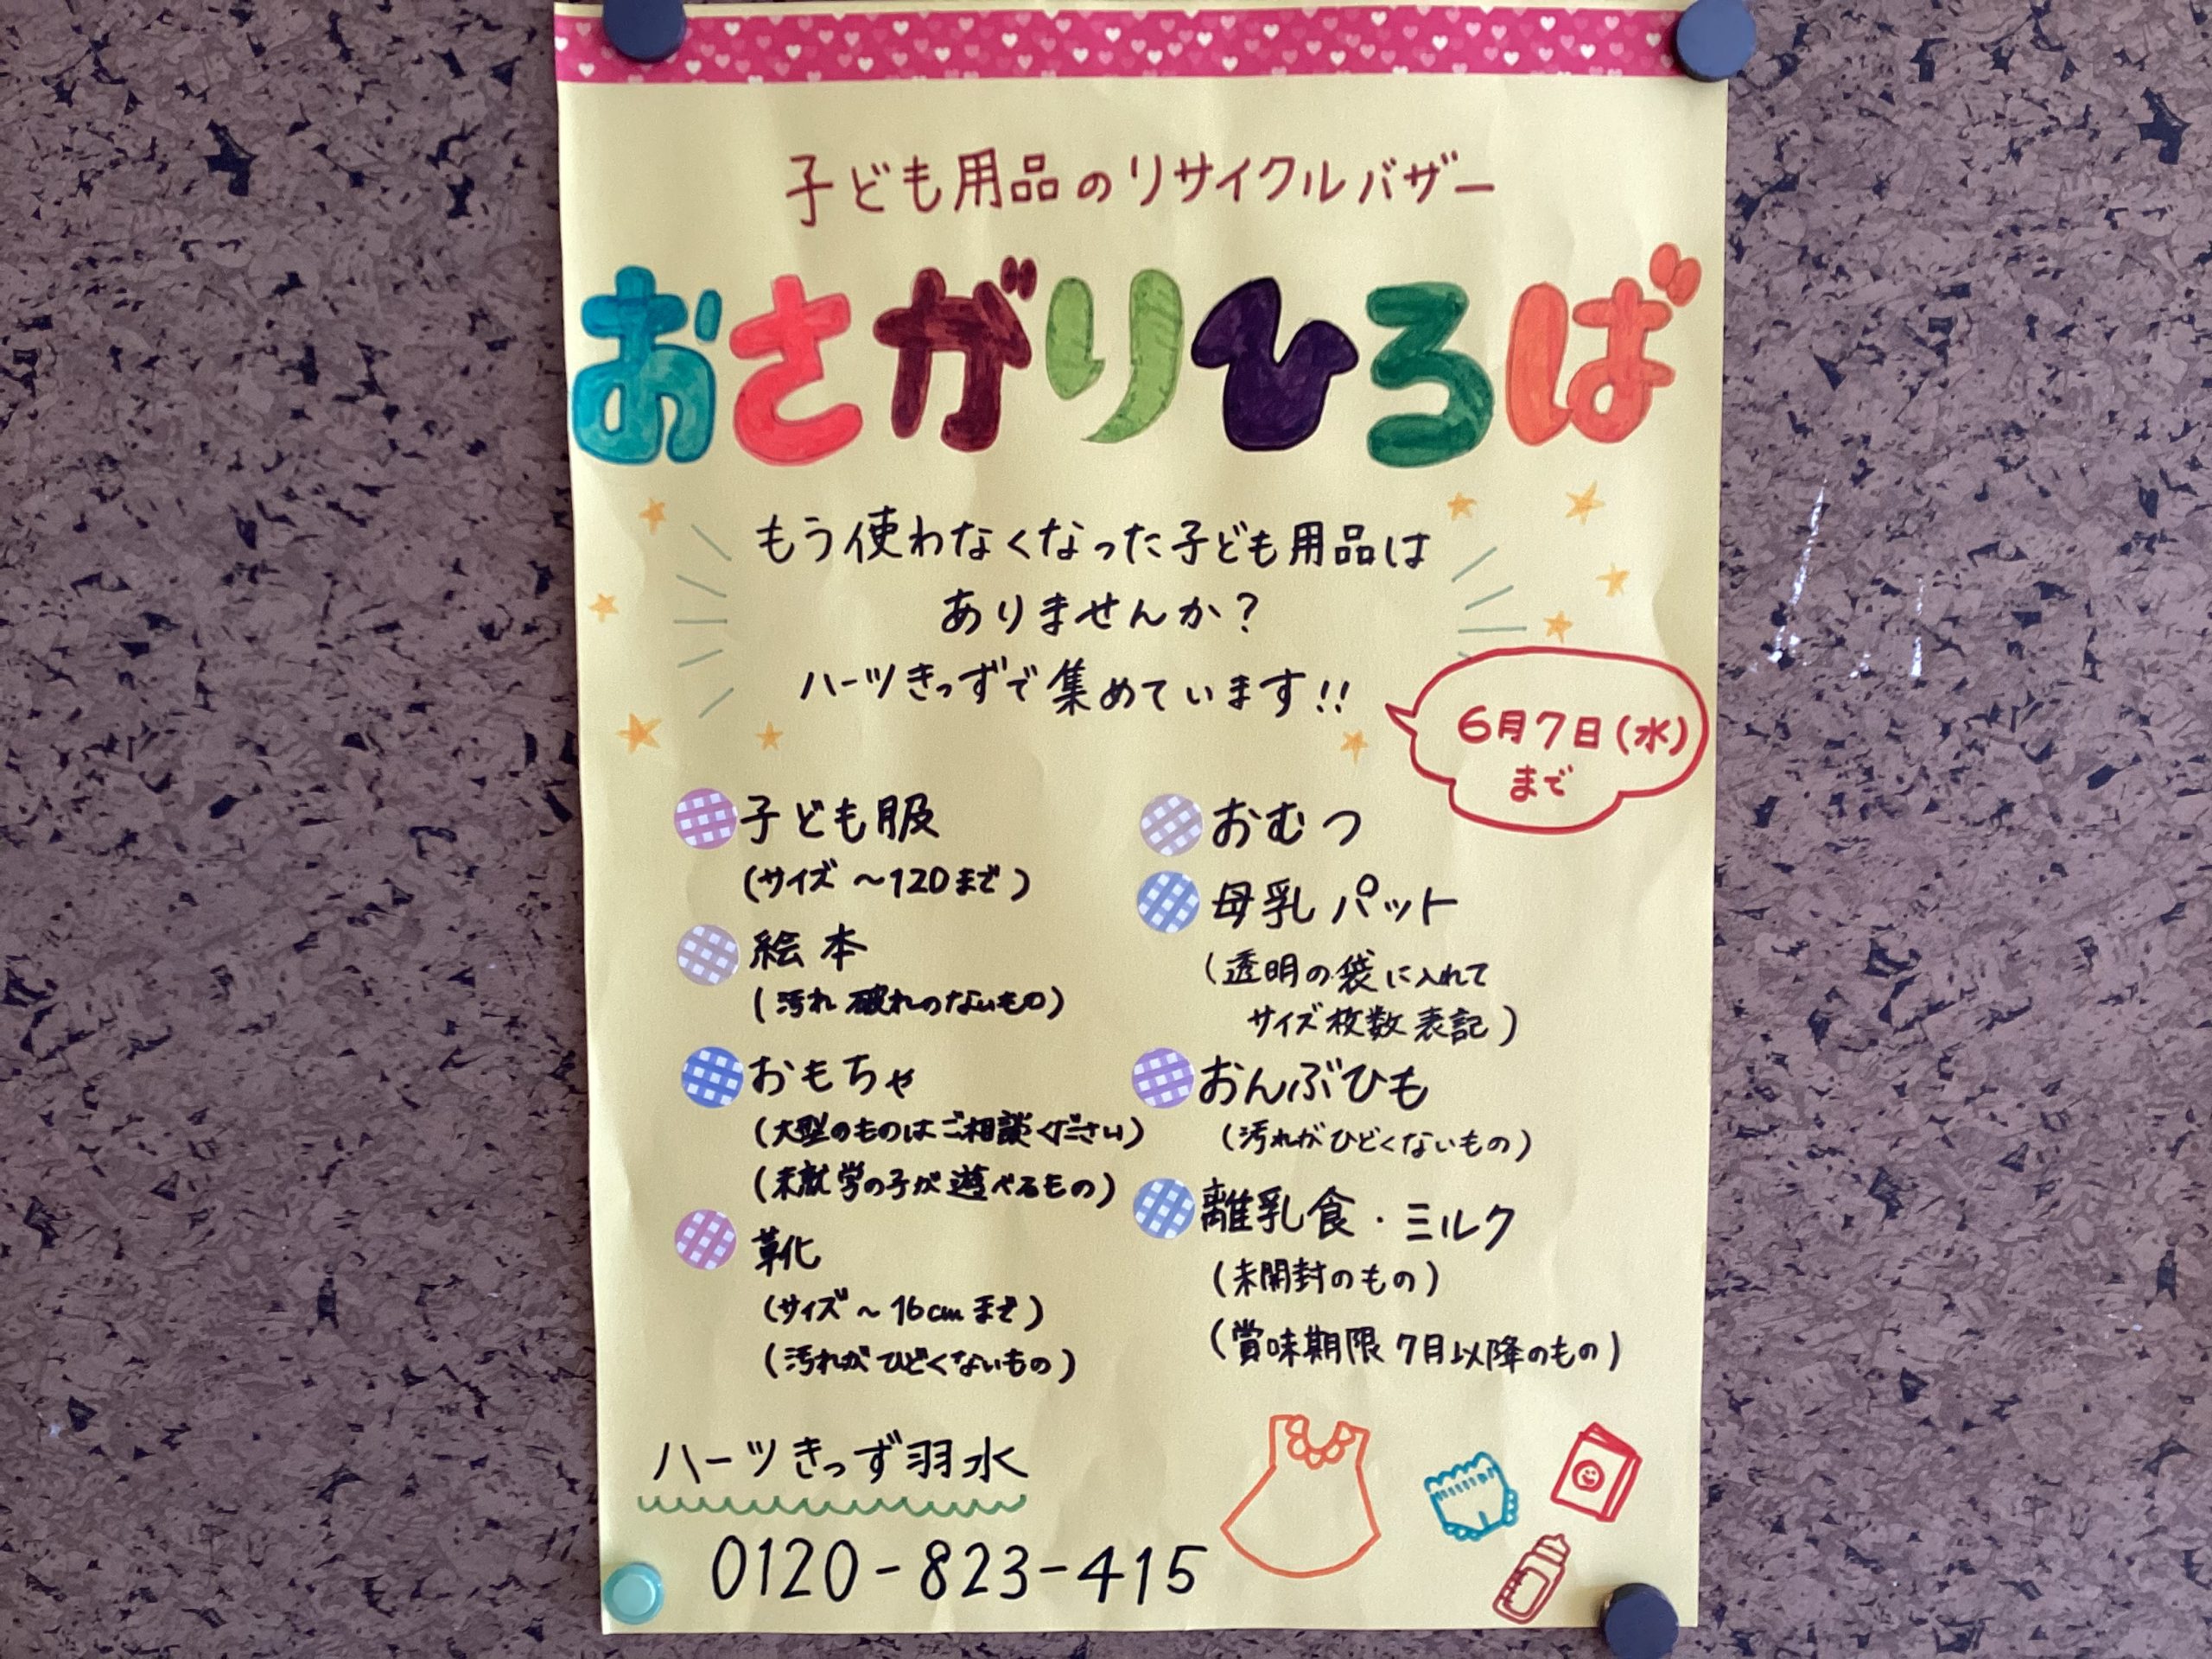 子ども用品のリサイクルバザー
おさがりひろば
もう使わなくなった子ども用品は
ありませんか?
ハーツきっずで集めています!!
6月7日(水)
まで
子ども服
(サイズ ~120まで)
絵本
(汚れ 破れのないもの)
おもちゃ
(大型のものはご相談ください)
(未就学の子が遊べるもの)
靴
(サイズ~16cmまで)
(汚れがひどくないもの)
おむつ
母乳パット
(透明の袋に入れて
サイズ枚数表記)
おんぶひも
(汚れがひどくないもの)
離乳食・ミルク
(未開封のもの)
(賞味期限7月以降のもの)
ハーツきっず羽水
0120-823-415